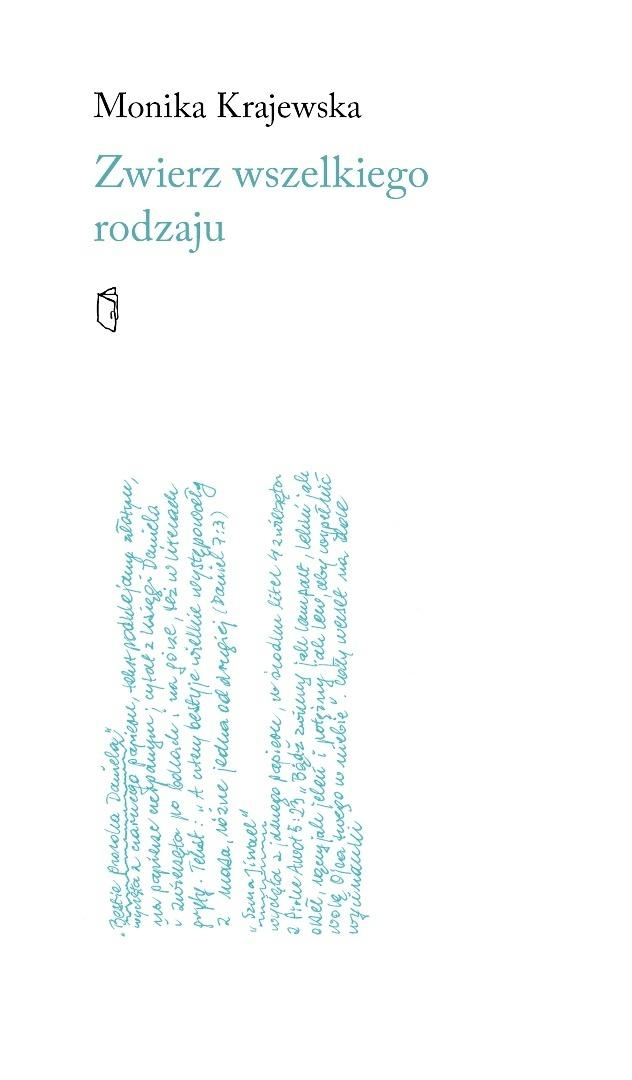 Monika Krajewska
Zwierz wszelkiego
rodzaju
"Bestie proroka Daniela"
wycięta z czarnego papieru, tekst podklejany złotym,
na papierze czerpanym; cytat z Księgi Daniela
i zwierzęta po bokach i na górze, też w literach
gryfy. Tekst: "A cztery bestyje wielkie występowały
z morza, różne jedna od drugiej (Daniel 7:3)
"Szma Jisrael"
wycięta z jednego papieru, w środku liter 4 zwierzęta
z Pirke Awot 5:23 "Bądź zwinny jak lampart, lekki jak
orzeł, rączy jak jeleń i potężny jak lew, aby wypełnić
wolę Ojca twego w niebie". Cały werset na dole